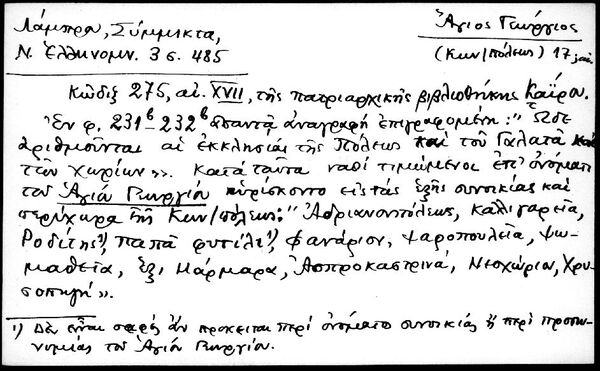 Λάμπρου, Σύμμικτα,
Ν. Ἑλληνομν. 3 σ. 485
Ἅγιος Γεώργιος
(Κων/πόλεως) 17 αἰ.
Κῶδιξ 275, αἰ. XVII, τῆς πατριαρχικῆς βιβλιοθήκης Καΐρου.
Ἐν φ. 231β-232β ἀπαντᾷ ἀναγραφὴ ἐπιγραφομένη: "Ὧδε
ἀριθμοῦνται αἱ ἐκκλησίαι τῆς Πόλεως καὶ τοῦ Γαλατᾶ καὶ
τῶν χωρίων». Κατὰ ταῦτα ναοὶ τιμώμενοι ἐπ' ὀνόματι
τοῦ Ἁγίου Γεωργίου εὑρίσκοντο εἰς τὰς ἑξῆς συνοικίας καὶ
περίχωρα τῆς Κων/πόλεως: "Ἀδριανουπόλεως, Καλιγαρεῖα,
Ροδίτης¹⁾, παπᾶ φυτίλι¹⁾, Φανάριον, Ψαροπουλεῖα, Ψω-
μαθεῖα, Ἕξι Μάρμαρα, Ἀσπροκαστρινά, Νεοχώριον, Χρυ-
σοπηγή».
¹⁾ Δὲν εἶναι σαφὲς ἂν πρόκειται περὶ ὀνόματο συνοικίας ἢ περὶ προσω-
νυμίας τοῦ Ἁγίου Γεωργίου.